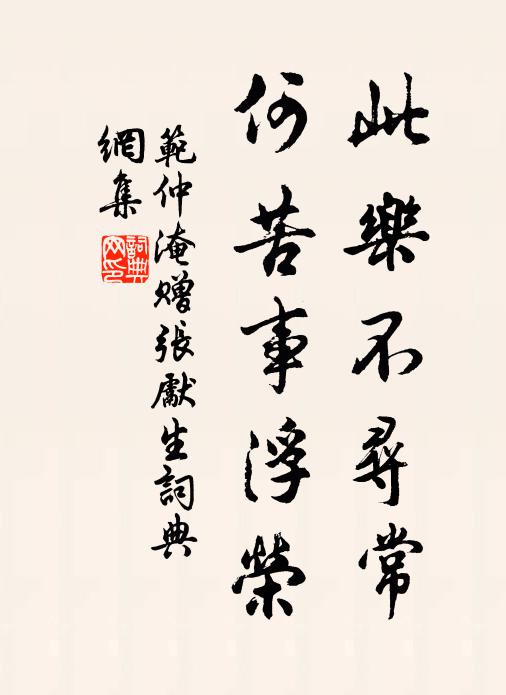 此樂不尋常
何苦事浮榮
範仲淹赠張獻生詞典
網集
詞典
网印